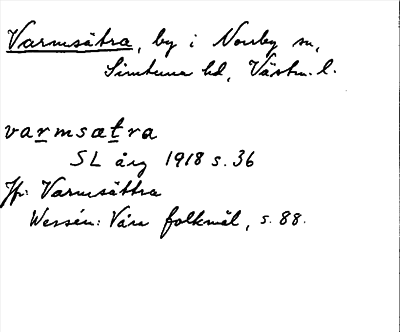 Varmsätra, by i Norrby sn,
Simtuna hd, Västm. l.
varmsatra
SL årg 1918 s. 36
Jfr: Varmsättra
Wessén: Våra folkmål, s. 88.